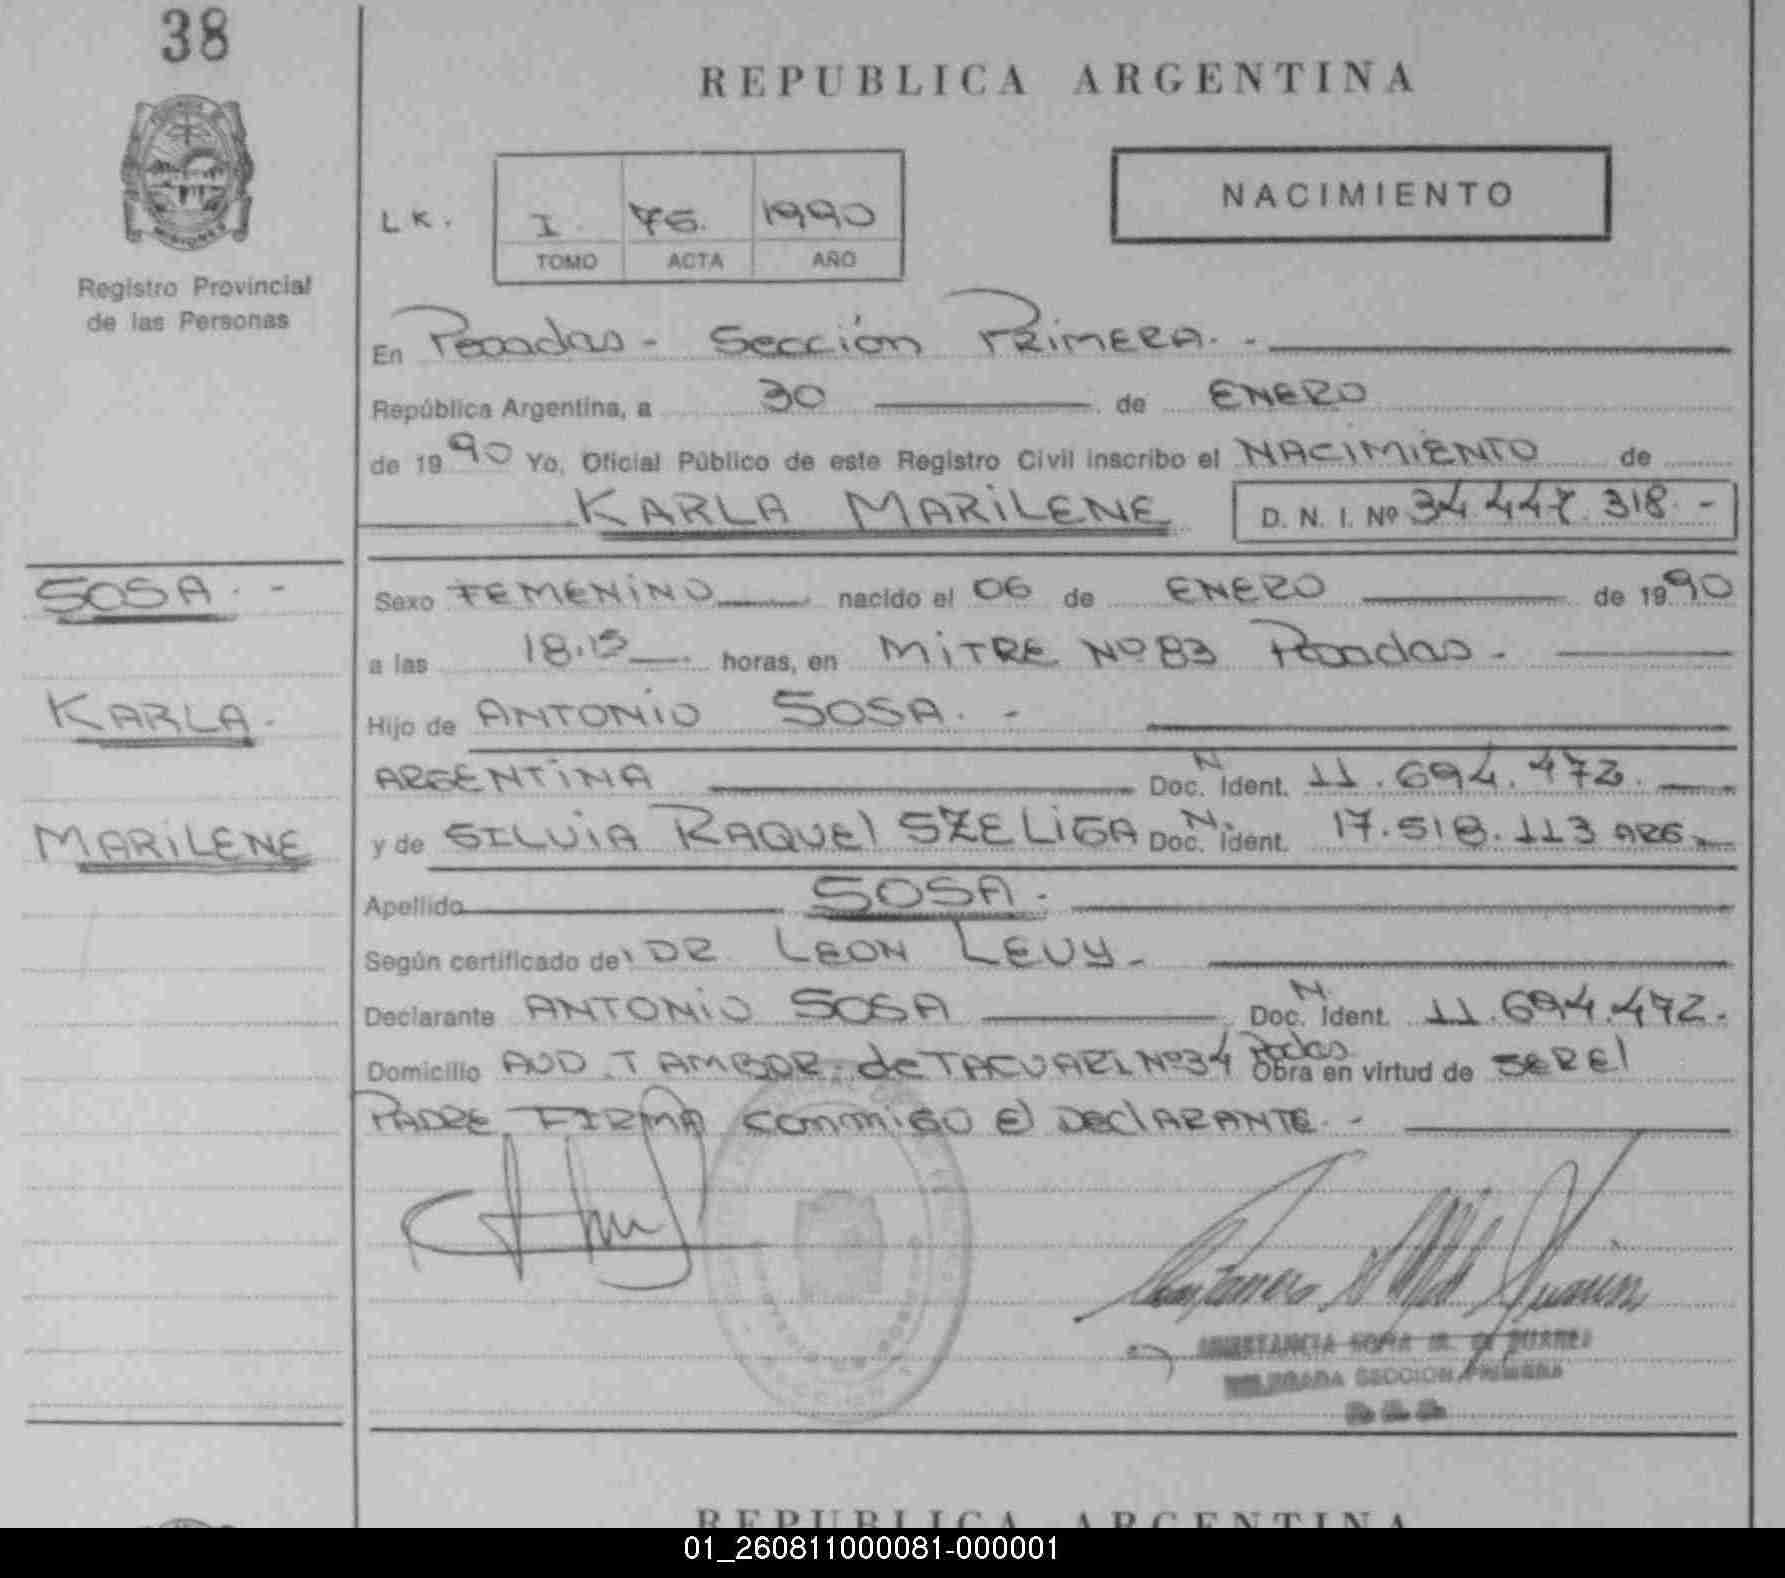 38
REPUBLICA ARGENTINA
NACIMIENTO
LK. I. 76. 1990
TOMO ACTA AÑO
Registro Provincial
de las Personas
En Posadas - Sección PRIMERA. -
República Argentina, a 30 de ENERO
de 1990 Yo, Oficial Público de este Registro Civil inscribo el NACIMIENTO de
KARLA MARILENE D. N. I. Nº 34.447.318. -
SOSA. -
Sexo FEMENINO nacido el 06 de ENERO de 1990
a las 18.15 horas, en MITRE Nº 83 Posadas -
KARLA.
Hijo de ANTONIO SOSA. -
ARGENTINA Doc. N. Ident. 11.694.472.
MARILENE
y de SILVIA RAQUEl SZELIGA Doc. N. Ident. 17.518.113 ARG.
Apellido SOSA.
Según certificado de DR LEON LEVY -
Declarante ANTONIO SOSA Doc. N. Ident. 11.694.472.
Domicilio AVD. TAMBOR de TACUARI Nº 34 Pdas Obra en virtud de SER El
PADRE FIRMA conmigo El DEClARANTE. -
SECCION PRIMERA
REPUBLICA ARGENTINA
01_260811000081-000001